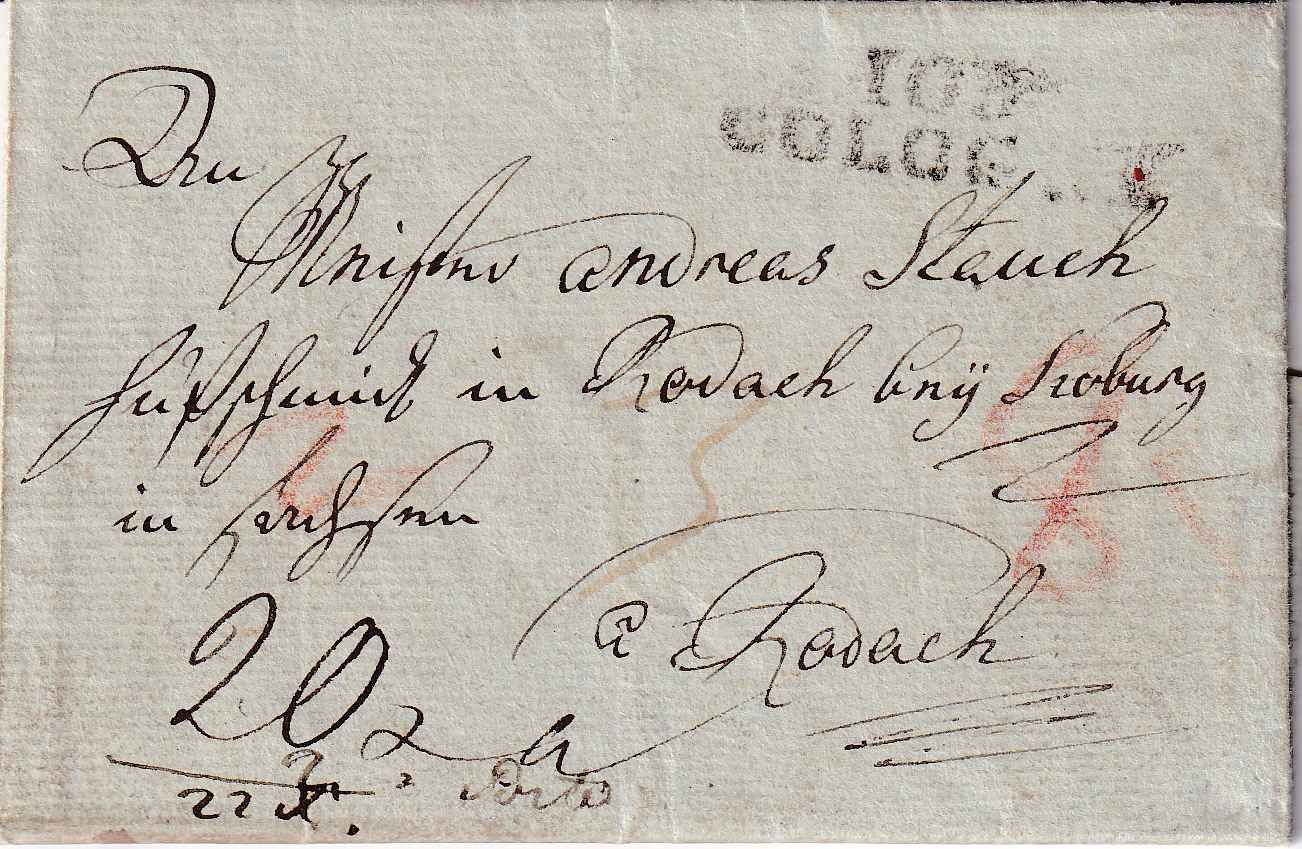 103
COLOG
Den
Meister andreas Stauch
Hufschmidt in Rodach bey Koburg
in sachsen
a Rodach
20
2
22 Xr
Porto